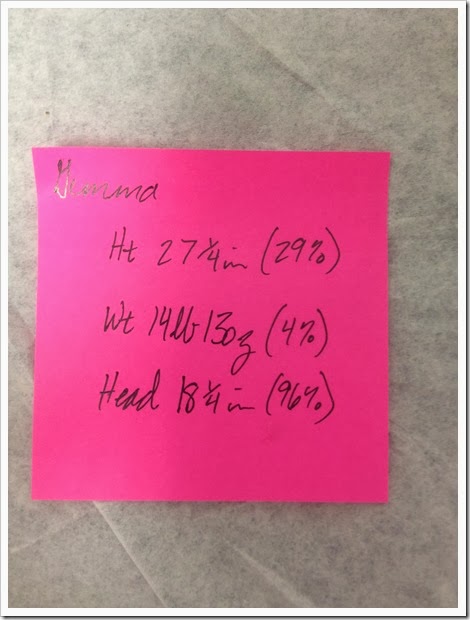 Gemma
Ht 27 1/4 in (29%)
Wt 14lb 13oz (4%)
Head 18 1/4 in (96%)